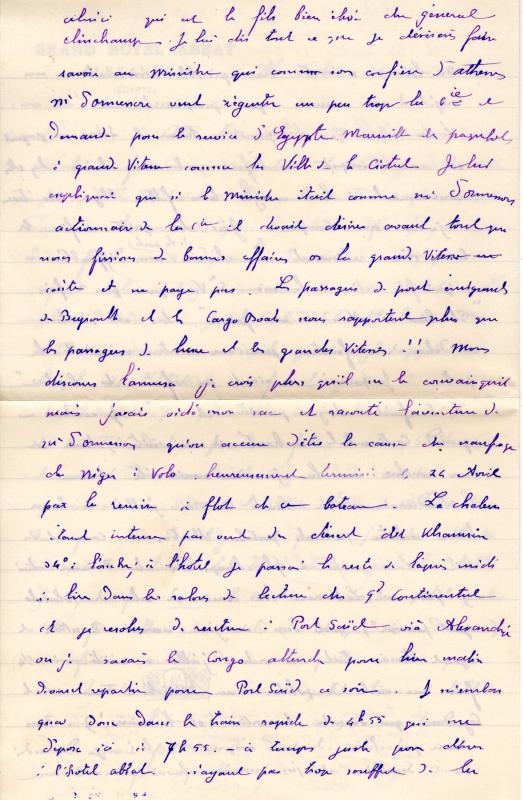 célèbre qui est le fils bien élevé du général
Clinchamp. Je lui dis tout ce que je désirais faire
savoir au Ministre qui comme son confrère d'athènes
Mr d'Ormesson veut régenter un peu trop la Cie et
demande pour le service d'Egypte Marseille des paquebots
à grande Vitesse comme les Ville de la Ciotat. Je lui
expliquai que si le Ministre était comme Mr d'Ormesson
actionnaire de la Cie il devrait désirer avant tout que
nous fissions de bonnes affaires or la grande Vitesse
coûte et ne paye pas. Les passagers de pont émigrants
de Beyrouth et les Cargo Boats nous rapportent plus que
les passagers de luxe et les grandes Vitesses !! Mon
discours l'amusa je crois plus qu'il ne le convainquit
mais j'avais vidé mon sac et raconté l'aventure de
Mr d'Ormesson qu'on accuse d'être la cause du naufrage
du Niger à Volo heureusement terminé le 24 Avril
par la remise à flot de ce bateau. La chaleur
étant intense par vent du désert dit Khamsin
34° à l'ombre à l'hôtel je passai le reste de l'après midi
à lire dans les salons de lecture du Gd Continental
et je résolus de rentrer à Port Saïd viâ Alexandrie
où je savais le Congo attendu pour hier matin
devant repartir pour Port Saïd ce soir. Je m'embar
quai donc dans le train rapide de 4h55 qui me
déposa ici à 7h55. - à temps juste pour dîner
à l'hotel abbat. n'ayant pas trop souffert de la